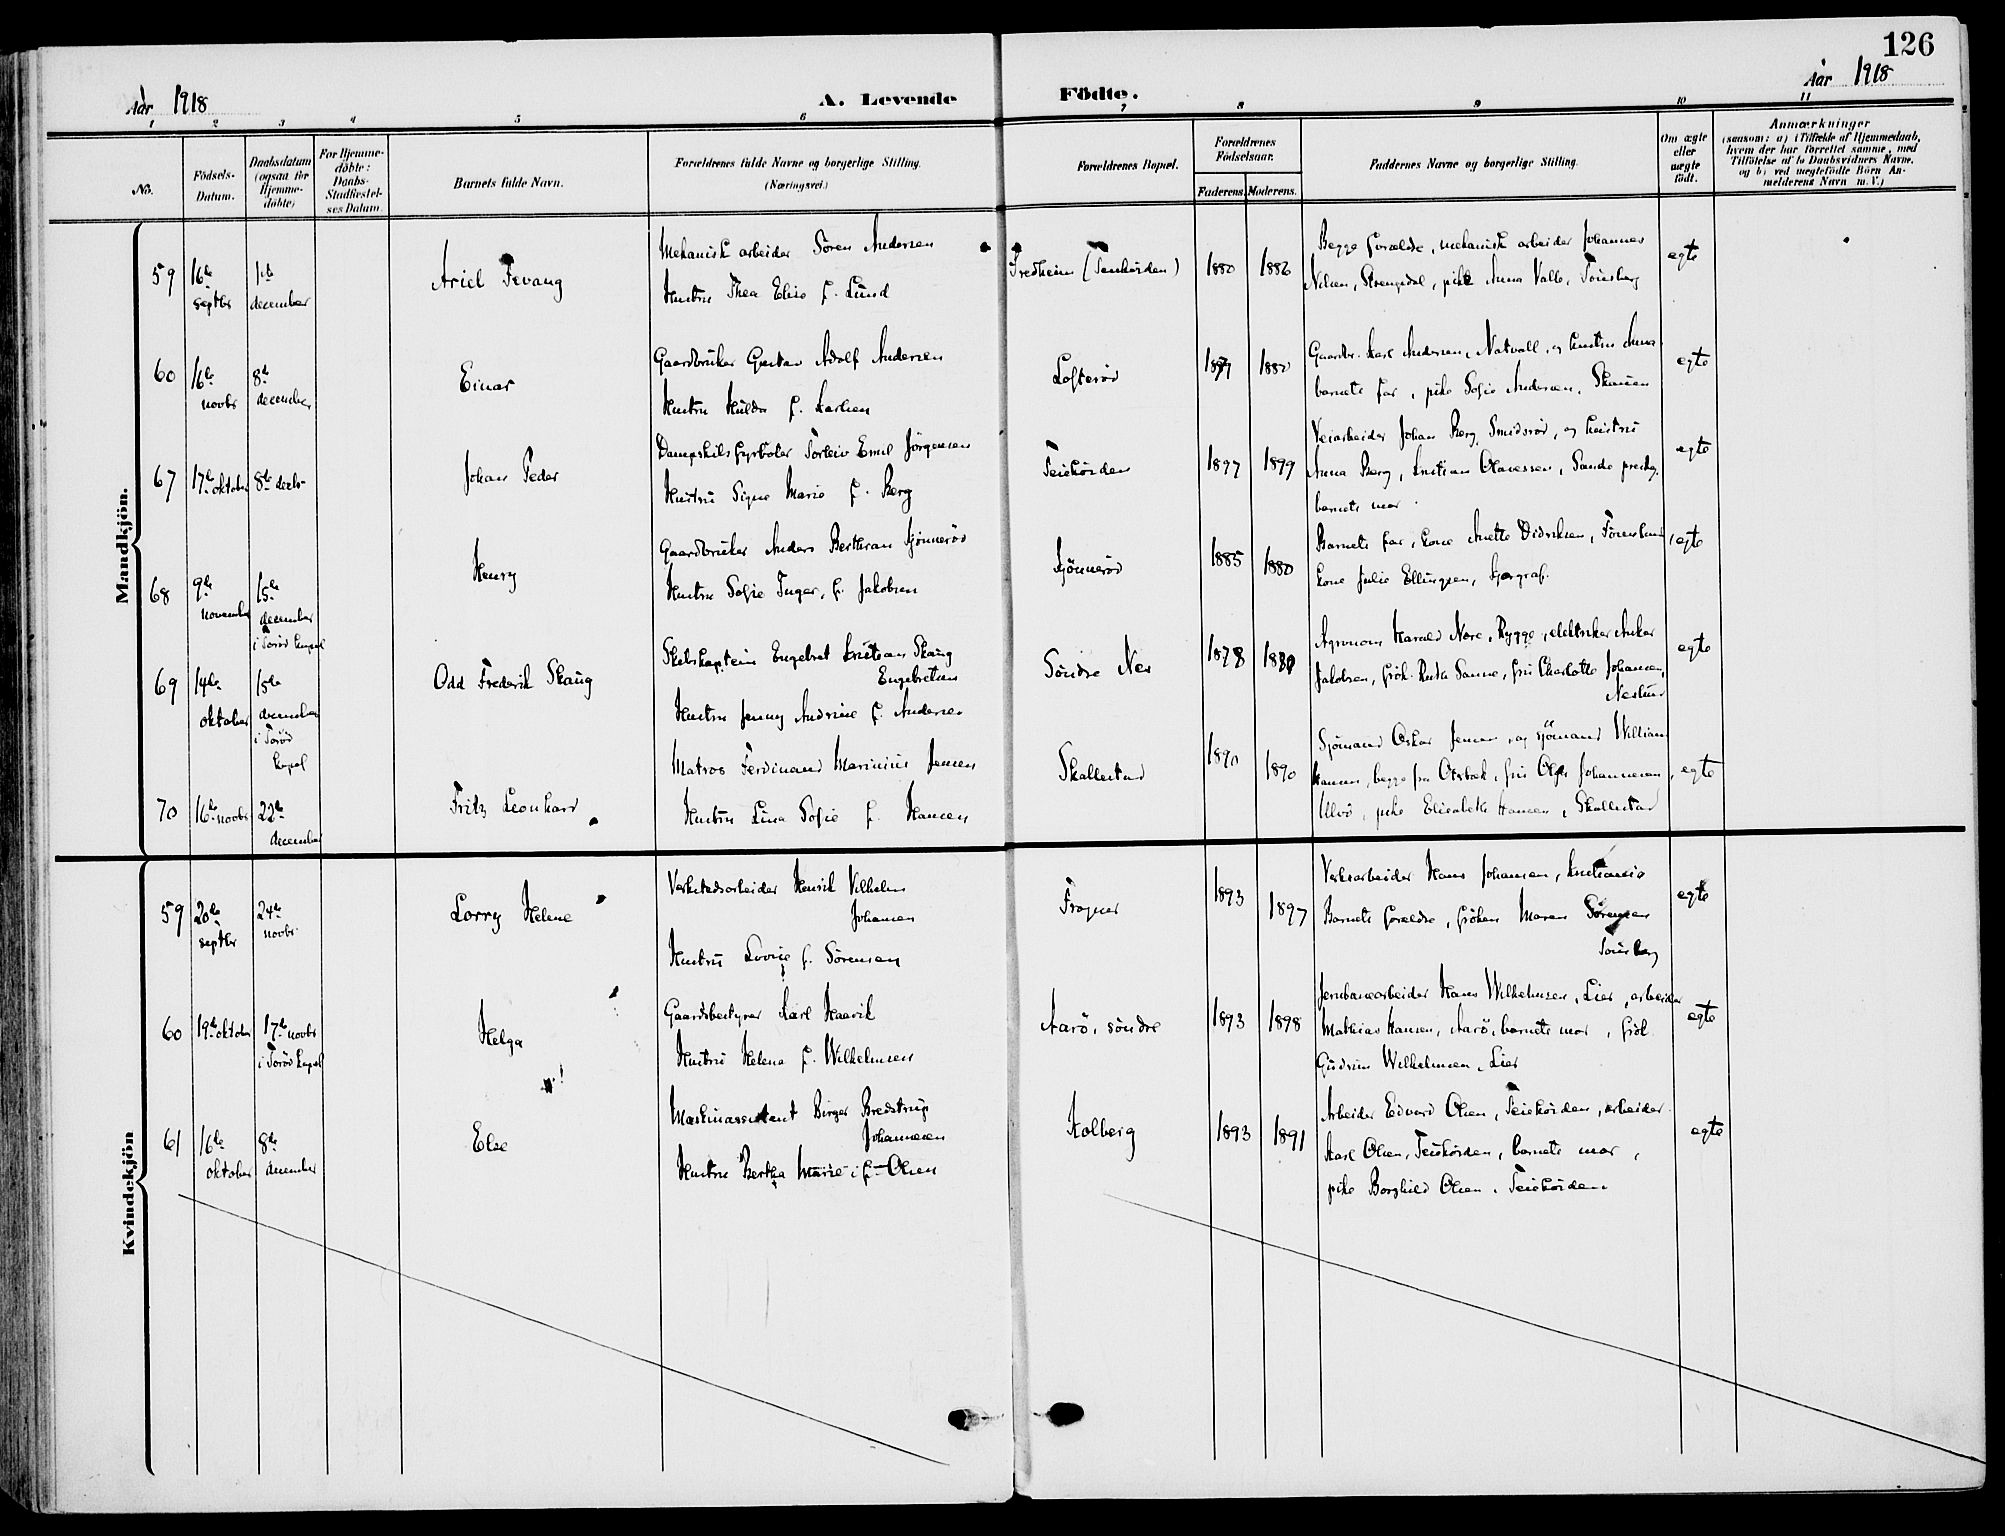 126
Aar 1918
A. Levende Födte.
Aar 1918
1 2 3 4 5 6 7 8 9 10 11
No.
Födsels-Datum.
Daabsdatum (ogsaa for Hjemme-döbte)
For Hjemme-döbte: Daabs-Stadfæstel-ses Datum.
Barnets fulde Navn.
Forældrenes fulde Navne og borgerlige Stilling.
(Næringsvei.)
Forældrenes Bopæl.
Forældrenes Födselsaar.
Faderens. Moderens.
Faddernes Navne og borgerlige Stilling.
Om ægte eller uægte födt.
Anmærkninger
(saasom: a) i Tilfælde af Hjemmedaab,
hvem der har forrettet samme, med
Tilföielse af to Daabsvidners Navne,
og b) ved uægtefödte Börn An-
melderens Navn m. V.)
Mandkjön.
59 16de septbr 1ste december
Ariel Fevang
Mekanisk arbeider Sören Andersen
Hustru Thea Elise f. Lund
Fredheim
1880 1886
Begge forældre, mekanisk arbeider Johannes
Nilsen, pike Anna Valle, Tönsberg
egte
60 16de novbr 8de december
Einar
Gaardbruker Gustav Adolf Andersen
Hustru Hulda f. Karlsen
Lofterød
1880
Gaardbr. Karl Andersen, Natvall, og hustru Anna
barnets far, pike Sofie Andersen,
egte
67 17de oktober 8de decbr
Johan Peder
Dampskibsfyrböter Torleiv Emil Jörgensen
Hustru Signe Marie f. Berg
Teieköiden
1897 1899
Veiarbeider Johan Berg, Smidsrød, og hustru
Anna Berg, Kristian Olavessen, Sande
barnets mor.
egte
68 9de november 15de december i Torød kapel
Henry
Gaardbruker Anders Berthran Gjönnerød
Hustru Sofie Inger, f. Jakobsen
Gjönnerød
1885 1880
Barnets far, kone Anette Didriksen,
kone Julie Ellingsen,
egte
69 14de oktober 15de december i Torød kapel
Odd Frederik Skaug
Skibskaptein Engebret Kristian Skaug
Engebretsen
Hustru Jenny Andrine f. Andersen
Söndre Nes
1878
Agronom Harald Nore, Rygge, elektriker Anker
Jakobsen, frök. Ruth Sanne, fru Charlotte Johansen,
egte
70 16de novbr 22de december
Fritz Leonhard
Matros Ferdinand Marinius Jensen
Hustru Lina Sofie f. Hansen
Skallestad
1890 1890
Sjömand Oskar Jensen og sjömand William
Hansen, begge fra Orsbæk, fru Olga Johannesen,
Ulvö, pike Elisabeth Hansen, Skallestad
egte
Kvindekjön
59 20de septbr 24de novbr
Lorry Helene
Verkstedsarbeider Henrik Vilhelm
Johansen
Hustru Lovise f. Sörensen
Frogner
1893 1897
Verksarbeider Hans Johansen, Kristiania
Barnets forældre, fröken Maren Sörensen
Tönsberg
egte
60 19de oktober 17de novbr i Torød kapel
Helga
Gaardsbestyrer Karl Haavik
Hustru Helena f. Wilhelmsen
Aarö, söndre
1893 1898
Jernbanearbeider Hans Wilhelmsen, Lier, arbeider
Mathias Hansen, Aarö, barnets mor, frök.
Gudrun Wilhelmsen, Lier
egte
61 16de oktober 8de december
Else
Maskinassistent Birger Bredstrup
Johannesen
Hustru Bertha Marie f. Olsen
Kolberg
1893 1891
Arbeider Edvard Olsen, Teieköiden, arbeider
Karl Olsen, Teieköiden, barnets mor,
pike Borghild Olsen, Teieköiden
egte